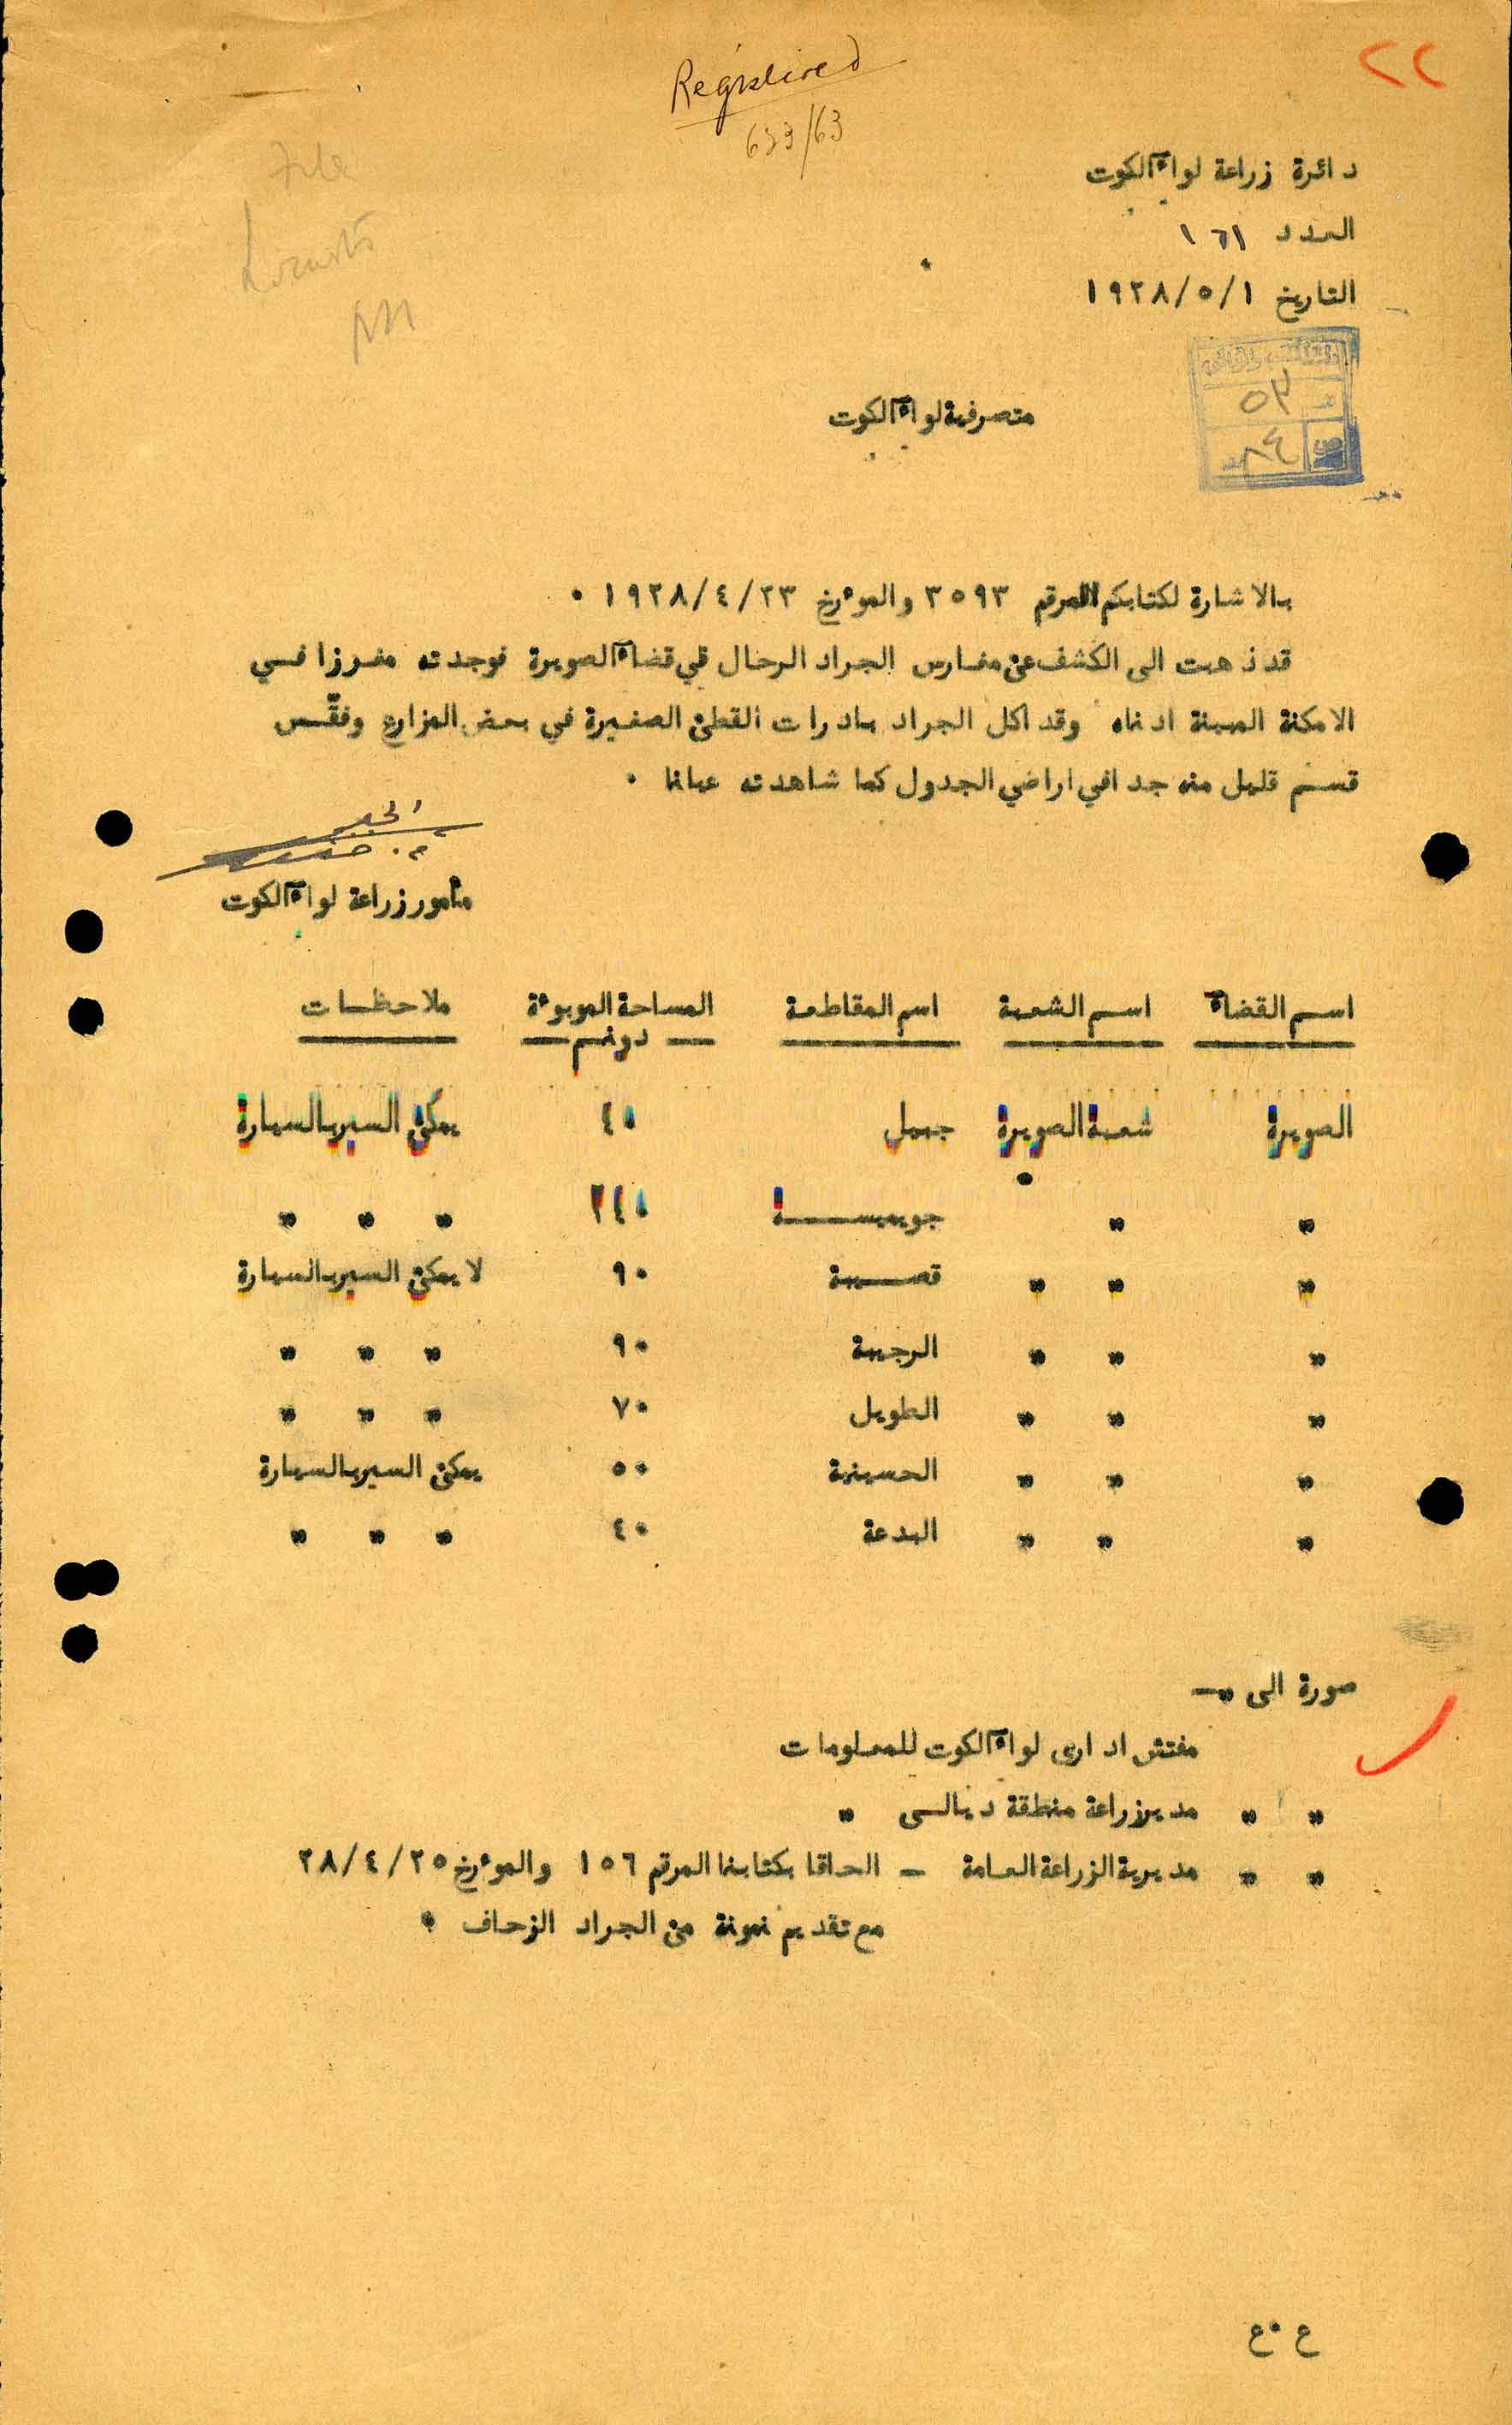 Registered
633/63
٢٢
File
Locusts
دائرة زراعة لواء الكوت
العدد ١٦١
التاريخ ١٩٢٨/٥/١
٥٣
ص ٨٤
متصرفية لواء الكوت
بالاشارة لكتابكم المرقم ٣٥٩٣ والموءرخ ١٩٢٨/٤/٢٣ ٠
قد ذهبت الى الكشف عن مغارس الجراد الرحال في قضاء الصويرة فوجدته مغرزا فــي
الامكنة المبينة ادناه وقد اكل الجراد بادرات القطن الصغيرة في بعض المزارع وفقّــس
قســم قليل منه جدا في اراضي الجدول كما شاهدته عيانا ٠
مأمور زراعة لواء الكوت
اســم القضاء اســم الشعبة اسم المقاطعة المساحة الموبوءة ملاحظــات
— دونــم —
الصويرة شعبة الصويرة جميل ٤٠ يمكن السير بالسيارة
" " جويميســـــة ٢٤٠ " " "
" " " قصــيبة ٩٠ لا يمكن السير بالسيارة
" " " الرجيبة ٩٠ " " "
" " " الطويل ٧٠ " " "
" " " الحسينية ٥٠ يمكن السير بالسيارة
" " " البدعة ٤٠ " " "
صورة الى :—
مفتش ادارى لواء الكوت للمعلومات
" " مدير زراعة منطقة ديالــى "
" " مديرية الزراعة العامة — الحاقا بكتابنا المرقم ١٥٦ والموءرخ ٢٨/٤/٢٥
مع تقديم نمونة من الجراد الزحاف ٠
ع ٠ ع